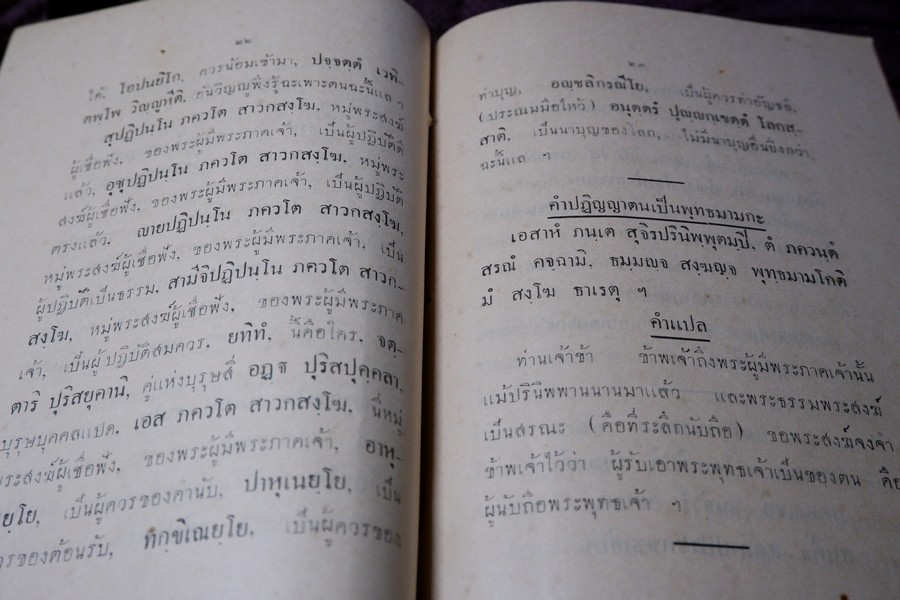 ๒๒
ได้. โอปนยิโก. ควรน้อมเข้ามา, ปจฺจตฺตํ เวทิ–
ตพฺโพ วิญฺญูหีติ. อันวิญญูพึงรู้ฉะเพาะตนฉะนี้แล ฯ
สุปฏิปนฺโน ภควโต สาวกสงฺโฆ. หมู่พระสงฆ์
ผู้เชื่อฟัง, ของพระผู้มีพระภาคเจ้า, เป็นผู้ปฏิบัติดี
แล้ว, อุชุปฏิปนฺโน ภควโต สาวกสงฺโฆ. หมู่พระ
สงฆ์ผู้เชื่อฟัง, ของพระผู้มีพระภาคเจ้า, เป็นผู้ปฏิบัติ
ตรงแล้ว. ญายปฏิปนฺโน ภควโต สาวกสงฺโฆ,
หมู่พระสงฆ์ผู้เชื่อฟัง, ของพระผู้มีพระภาคเจ้า, เป็น
ผู้ปฏิบัติเป็นธรรม, สามีจิปฏิปนฺโน ภควโต สาวก–
สงฺโฆ, หมู่พระสงฆ์ผู้เชื่อฟัง, ของพระผู้มีพระภาค
เจ้า, เป็นผู้ปฏิบัติสมควร, ยทิทํ. นี้คือใคร, จตฺ–
ตาริ ปุริสยุคานิ, คู่แห่งบุรุษสี่ อฏฺฐ ปุริสปุคฺคลา,
บุรุษบุคคลแปด, เอส ภควโต สาวกสงฺโฆ, นี่หมู่
พระสงฆ์ผู้เชื่อฟัง, ของพระผู้มีพระภาคเจ้า, อาหุ–
เนยฺโย, เป็นผู้ควรของคำนับ, ปาหุเนยฺโย, เป็น
ผู้ควรของต้อนรับ, ทกฺขิเณยฺโย, เป็นผู้ควรของ
๒๓
ทำบุญ, อญฺชลิกรณีโย, เป็นผู้ควรทำอัญชลี,
(ประณมมือไหว้) อนุตฺตรํ ปุญฺญกฺเขตฺตํ โลกสฺ–
สาติ. เป็นนาบุญของโลก, ไม่มีนาบุญอื่นยิ่งกว่า,
ฉะนี้แล ฯ
คำปฏิญญาตนเป็นพุทธมามกะ
เอสาหํ ภนฺเต สุจิรปรินิพฺพุตมฺปิ, ตํ ภควนฺตํ
สรณํ คจฺฉามิ, ธมฺมญฺจ สงฺฆญฺจ พุทฺธมามโกติ
มํ สงฺโฆ ธาเรตุ ฯ
คำแปล
ท่านเจ้าข้า ข้าพเจ้าถึงพระผู้มีพระภาคเจ้านั้น
แม้ปรินิพพานนานมาแล้ว และพระธรรมพระสงฆ์
เป็นสรณะ (คือที่ระลึกนับถือ) ขอพระสงฆ์จงจำ
ข้าพเจ้าไว้ว่า ผู้รับเอาพระพุทธเจ้าเป็นของตน คือ
ผู้นับถือพระพุทธเจ้า ฯ